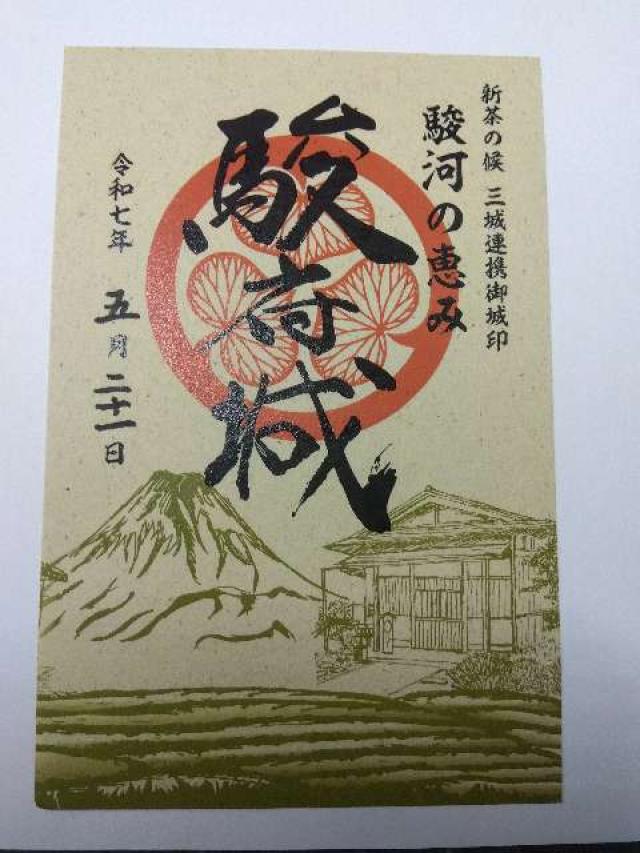 新茶の候 三城連携御城印
駿河の恵み
駿府城
令和七年 五月二十一日